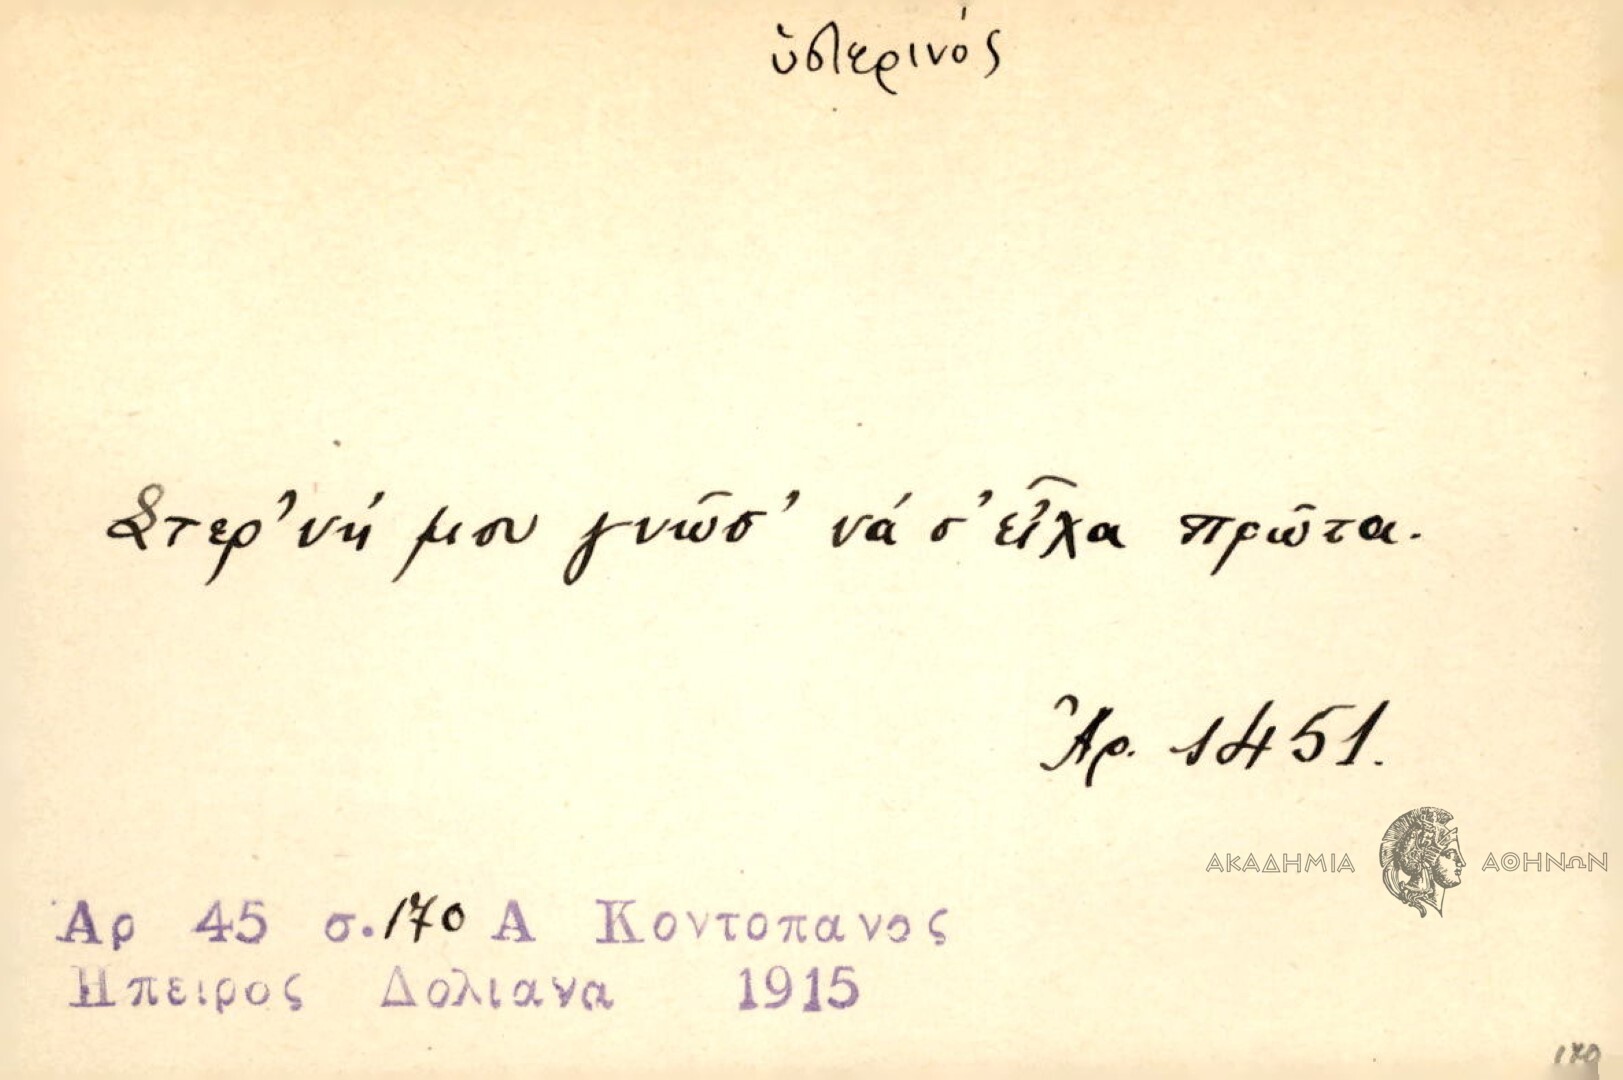 ὑστερινός
Στερ'νή μου γνῶσ' νά σ' εἶχα πρῶτα.
Ἀρ. 1451.
ΑΚΑΔΗΜΙΑ ΑΘΗΝΩΝ
Αρ 45 σ. 170 Α Κοντοπανος
Ηπειρος Δολιανα 1915
170